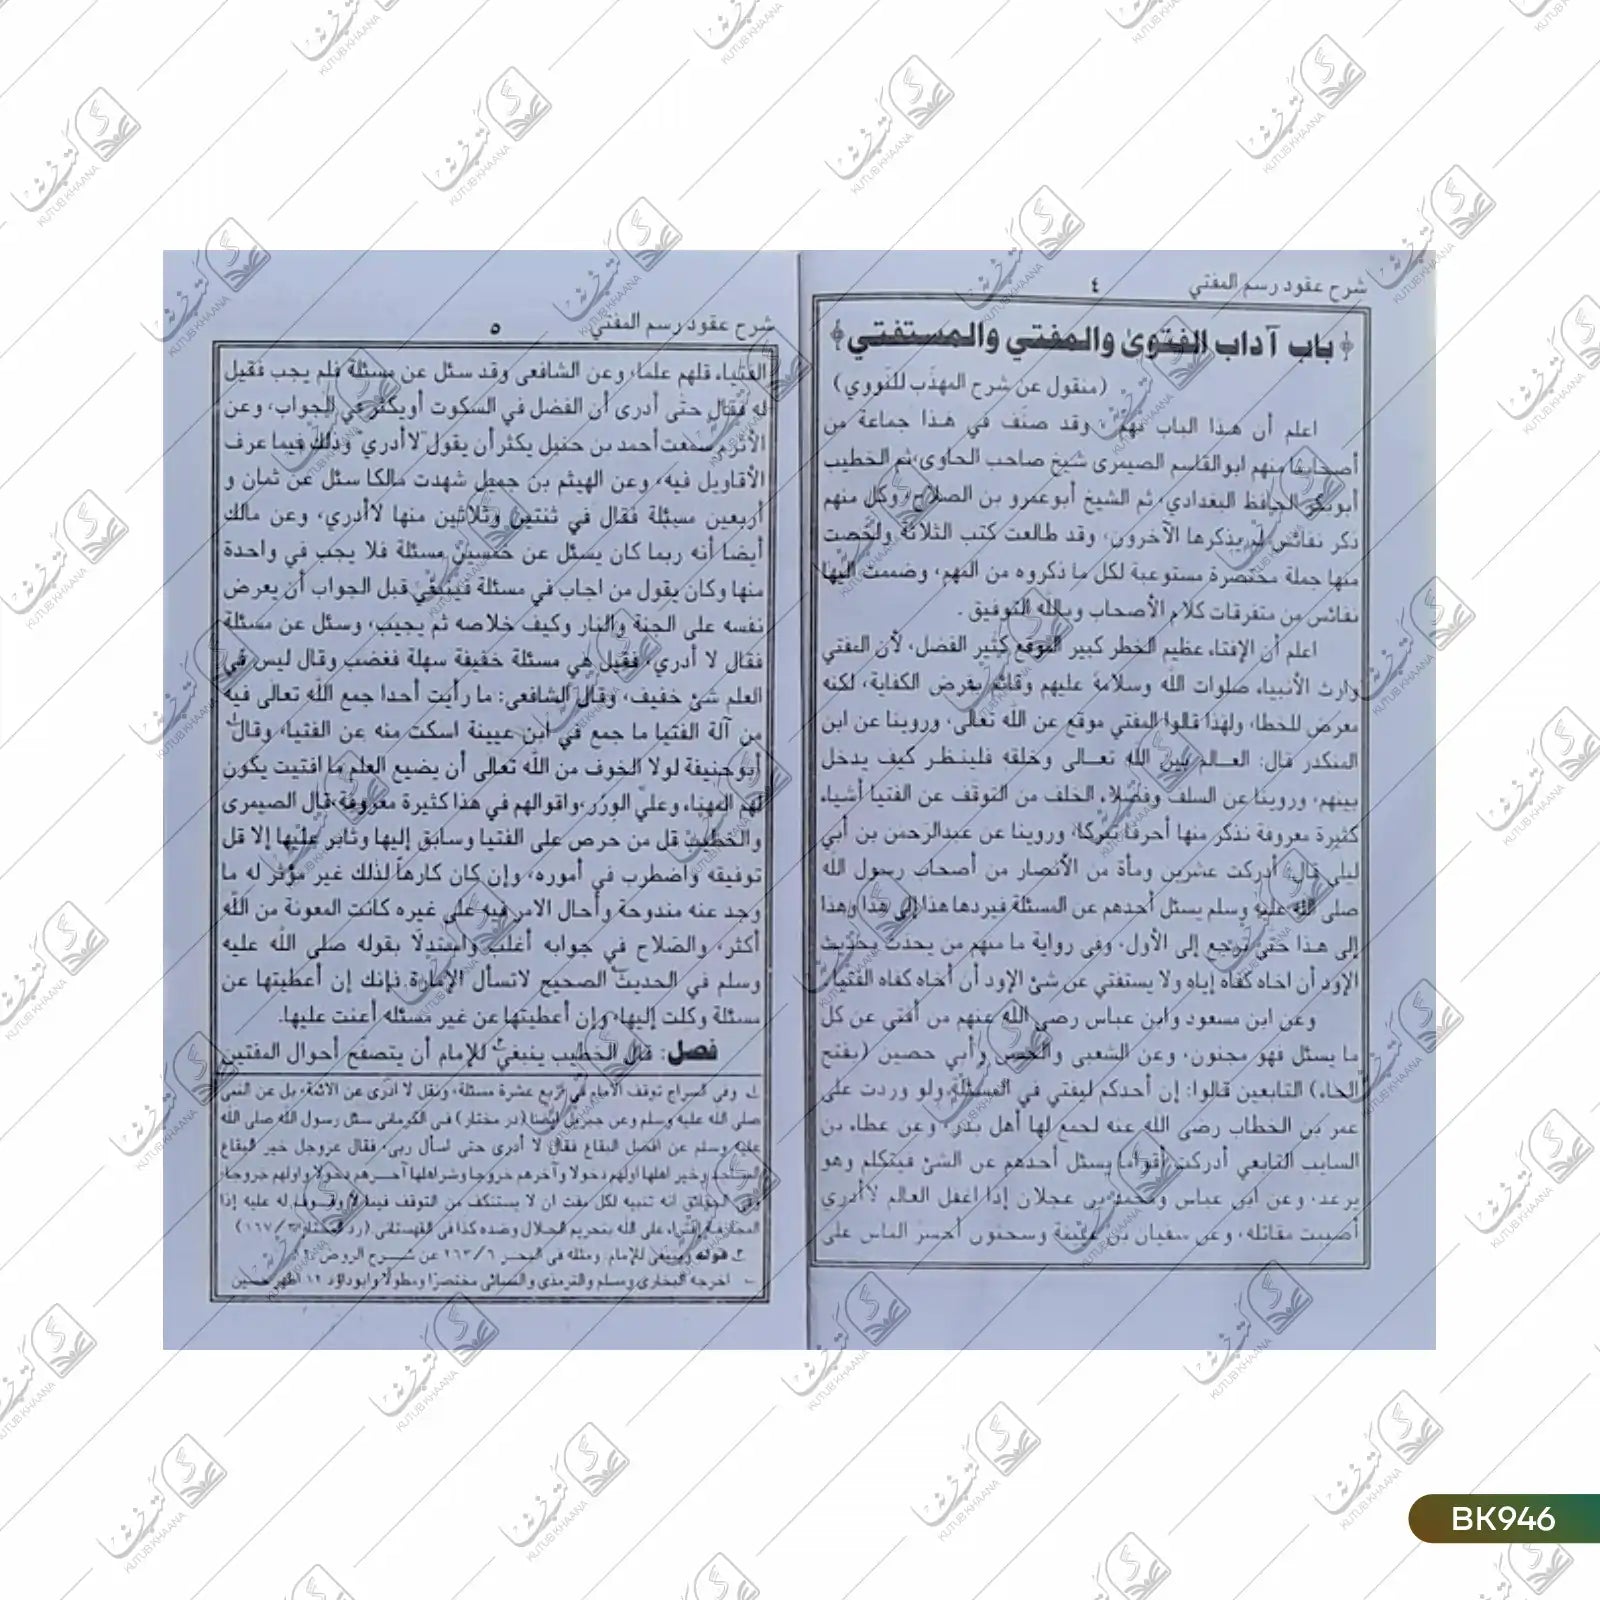 شرح عقود رسم المفتي ٤
﴿باب آداب الفتوىٰ والمفتي والمستفتي﴾
(منقول عن شرح المهذّب للنّووي)
اعلم أن هذا الباب مهم، وقد صنّف في هذا جماعة من
أصحابنا منهم ابوالقاسم الصيمرى شيخ صاحب الحاوى، ثم الخطيب
أبوبكر الحافظ البغدادي، ثم الشيخ أبوعمرو بن الصلاح، وكل منهم
ذكر نفائس لم يذكرها الآخرون، وقد طالعت كتب الثلاثة ولخصت
منها جملة مختصرة مستوعبة لكل ما ذكروه من المهم، وضممت اليها
نفائس من متفرقات كلام الأصحاب وبالله التوفيق.
اعلم أن الإفتاء عظيم الخطر كبير الموقع كثير الفضل، لأن المفتي
وارث الأنبياء صلوات الله وسلامه عليهم وقائم بفرض الكفاية، لكنه
معرض للخطا، ولهٰذا قالوا المفتي موقع عن الله تعالى، وروينا عن ابن
المنكدر قال: العالم بين الله تعالى وخلقه فلينظر كيف يدخل
بينهم، وروينا عن السلف وفضلاء الخلف من التوقف عن الفتيا أشياء
كثيرة معروفة نذكر منها أحرفا تبركا، وروينا عن عبدالرحمٰن بن أبي
ليلى قال: أدركت عشرين ومأة من الأنصار من أصحاب رسول الله
صلى الله عليه وسلم يسئل أحدهم عن المسئلة فيردها هذا إلى هذا وهذا
إلى هذا حتى ترجع إلى الأول، وفى رواية ما منهم من يحدث بحديث
الاود أن اخاه كفاه إياه ولا يستفتي عن شئ الاود أن أخاه كفاه الفتيا.
وعن ابن مسعود وابن عباس رضى الله عنهم من أفتى عن كل
ما يسئل فهو مجنون، وعن الشعبى والحسن وأبي حصين (بفتح
الحاء) التابعين قالوا: إن أحدكم ليفتي في المسئلة ولو وردت على
عمر بن الخطاب رضى الله عنه لجمع لها أهل بدر، وعن عطاء بن
السايب التابعي أدركت أقواما يسئل أحدهم عن الشئ فيتكلم وهو
يرعد، وعن ابن عباس ومحمد بن عجلان إذا اغفل العالم لا أدري
أصيبت مقاتله، وعن سفيان بن عيينة وسحنون أجسر الناس على
شرح عقود رسم المفتي ٥
الفتياء قلهم علما، وعن الشافعى وقد سئل عن مسئلة فلم يجب فقيل
له فقال حتى أدرى أن الفضل في السكوت أويكثر في الجواب، وعن
الأثرم سمعت أحمد بن حنبل يكثر أن يقول لا أدري وذلك فيما عرف
الأقاويل فيه، وعن الهيثم بن جميل شهدت مالكا سئل عن ثمان و
أربعين مسئلة فقال في ثنتين وثلاثين منها لاأدري، وعن مالك
أيضا أنه ربما كان يسئل عن خمسين مسئلة فلا يجب في واحدة
منها وكان يقول من اجاب في مسئلة فينبغي قبل الجواب أن يعرض
نفسه على الجنة والنار وكيف خلاصه ثم يجيب، وسئل عن مسئلة
فقال لا أدري، فقيل هي مسئلة خفيفة سهلة فغضب وقال ليس في
العلم شئ خفيف، وقال الشافعى: ما رأيت أحدا جمع الله تعالى فيه
من آلة الفتيا ما جمع في ابن عيينة اسكت منه عن الفتيا، وقال
أبوحنيفة لولا الخوف من الله تعالى أن يضيع العلم ما افتيت يكون
لهم المهنا، وعلىّ الوزر، واقوالهم في هذا كثيرة معروفة، قال الصيمرى
والخطيب قل من حرص على الفتيا وسابق إليها وثابر عليها إلا قل
توفيقه واضطرب في أموره، وإن كان كارهاً لذلك غير مؤثر له ما
وجد عنه مندوحة وأحال الامر فيه على غيره كانت المعونة من الله
أكثر، والصّلاح في جوابه أغلب، واستدلّا بقوله صلى الله عليه
وسلم في الحديث الصحيح لاتسأل الإمارة فإنك إن أعطيتها عن
مسئلة وكلت إليها، وإن أعطيتها عن غير مسئله أعنت عليها.
فصل: قال الخطيب ينبغي للإمام أن يتصفح أحوال المفتين
وفي السراج توقف الأمام في أربع عشرة مسئلة، ونقل لا أدرى عن الائمة، بل عن النبى
صلى الله عليه وسلم وعن جبريل ايضا (در مختار) فى الكرمانى سئل رسول الله صلى الله
عليه وسلم عن افضل البقاع فقال لا أدرى حتى اسأل ربى، فقال عزوجل خير البقاع
المساجد وخير اهلها اولهم دخولا وآخرهم خروجا وشر اهلها آخرهم دخولا واولهم خروجا،
وفى الحقائق انه تنبيه لكل مفت ان لا يستنكف من التوقف فيما لا وقوف له عليه إذا
المجازفة إفتراء على الله بتحريم الحلال وضده كذا فى القهستانى (رد المحتار ١٦٧/٣)
قوله وينبغى للإمام، ومثله فى البحر ٢٦٣/٦ عن شرح الروض ١٢
اخرجه البخارى ومسلم والترمذى والنسائى مختصرا ومطولا وابوداؤد ١٢ اظهر حسين
كتب خانہ
KUTUB KHAANA
BK946